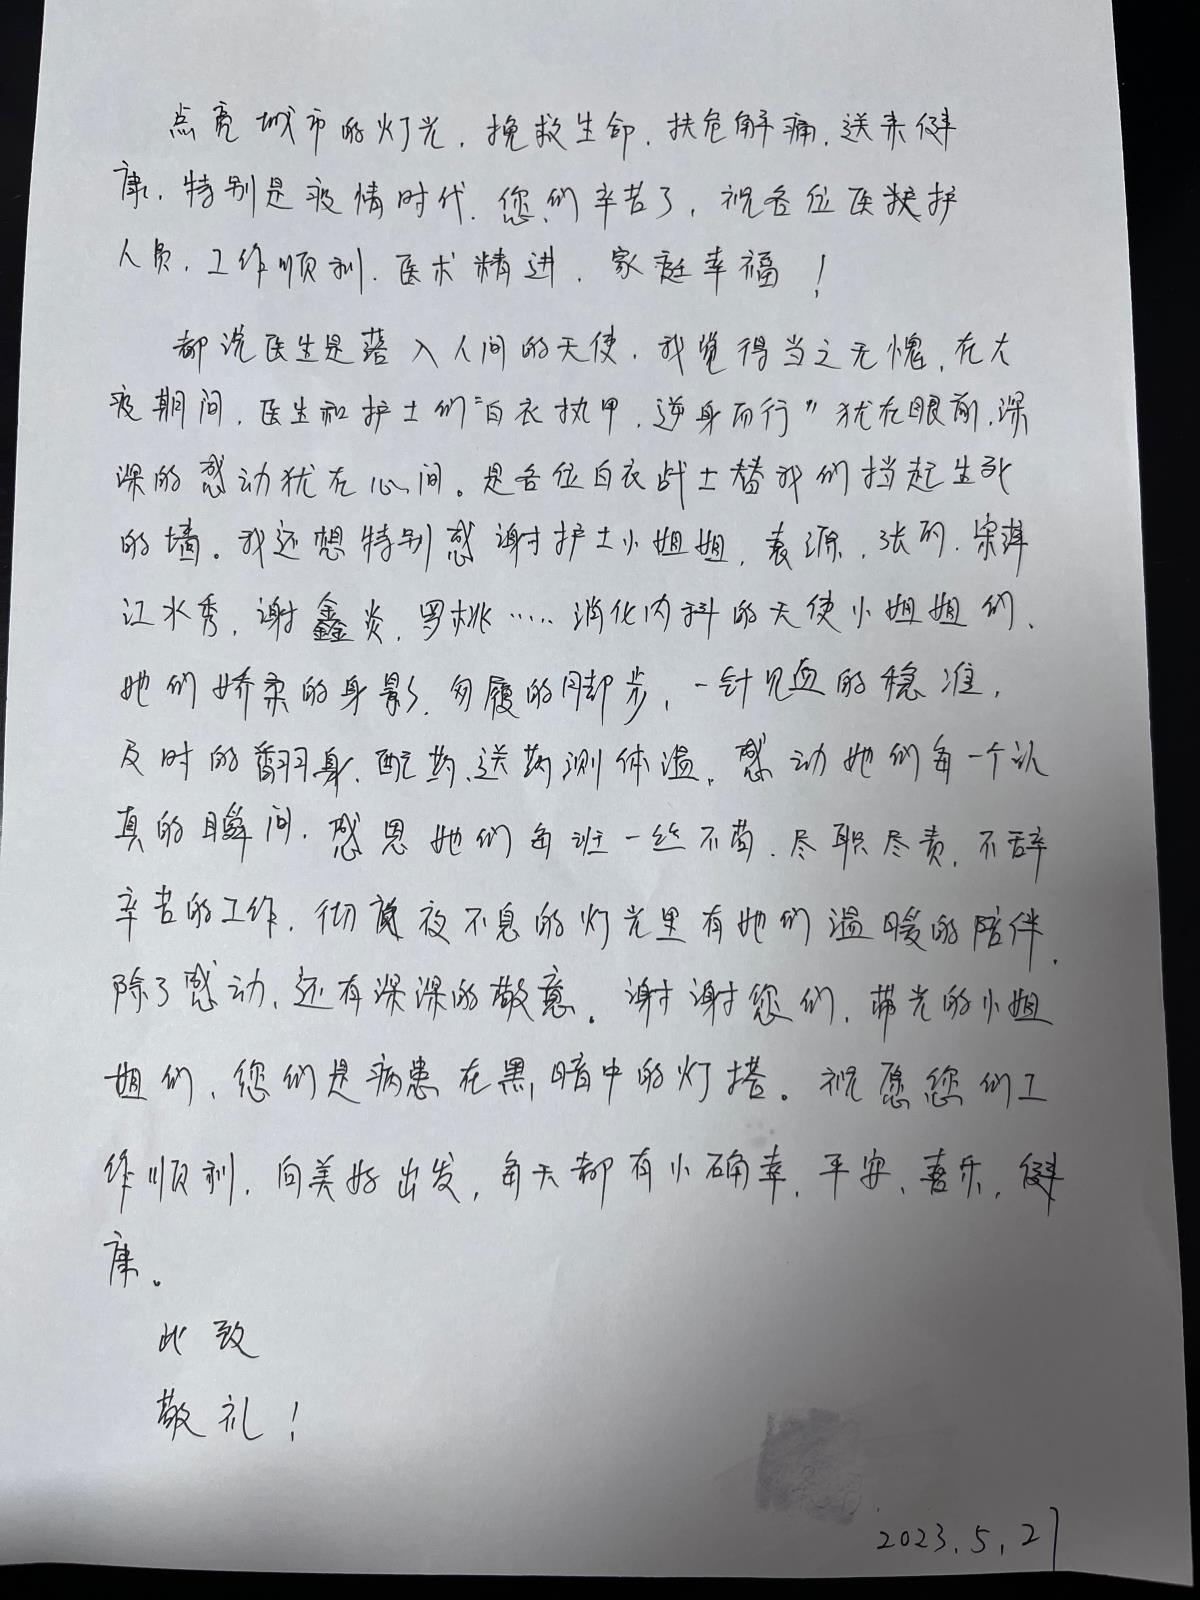 点亮城市的灯光，挽救生命，扶危解痛，送来健
康，特别是疫情时代，您们辛苦了，祝各位医护
人员，工作顺利，医术精进，家庭幸福！
都说医生是落入人间的天使，我觉得当之无愧，在大
疫期间，医生和护士们“白衣执甲，逆身而行”犹在眼前，深
深的感动犹在心间。是各位白衣战士替我们挡起生死
的墙。我还想特别感谢护士小姐姐，袁源，张
江水秀，谢鑫炎，罗桃……消化内科的天使小姐姐们，
她们娇柔的身影，匆履的脚步，一针见血的稳准，
及时的翻身、配药、送药测体温，感动她们每一个认
真的瞬间，感恩她们每班一丝不苟，尽职尽责，不辞
辛苦的工作，彻夜不息的灯光里有她们温暖的陪伴，
除了感动，还有深深的敬意。谢谢您们，带光的小姐
姐们，您们是病患在黑暗中的灯塔。祝愿您们工
作顺利，向美好出发，每天都有小确幸，平安，喜乐，健
康。
此致
敬礼！
2023.5.27